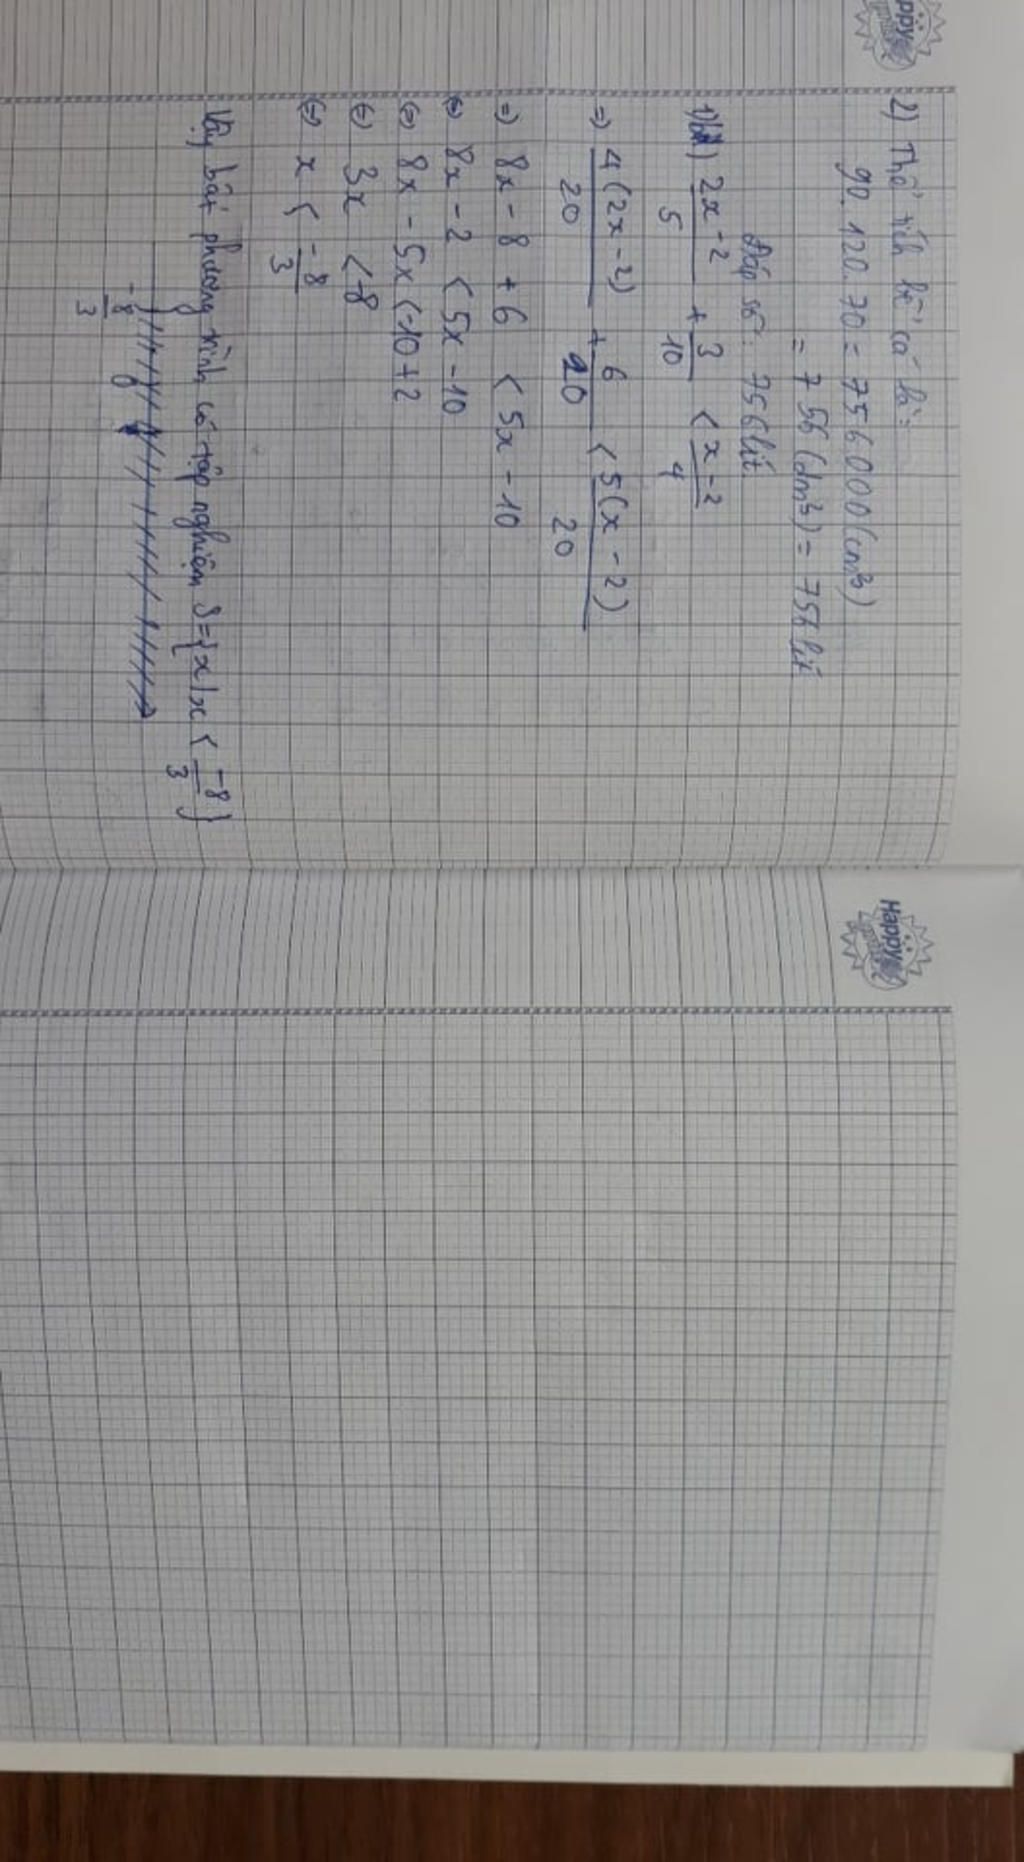 Happy
2) Thể tích bể cá là:
90.120.70 = 756000 (cm³)
= 756 (dm³) = 756 lít
Đáp số: 756 lít.
1) b) 2x-2/5 + 3/10 < x-2/4
=) 4(2x-2)/20 + 6/20 < 5(x-2)/20
=) 8x-8 + 6 < 5x - 10
(=) 8x-2 < 5x-10
(=) 8x - 5x < -10+2
(=) 3x < -8
(=) x < -8/3
Vậy bất phương trình có tập nghiệm S={x|x < -8/3}
-8/3 0
Happy